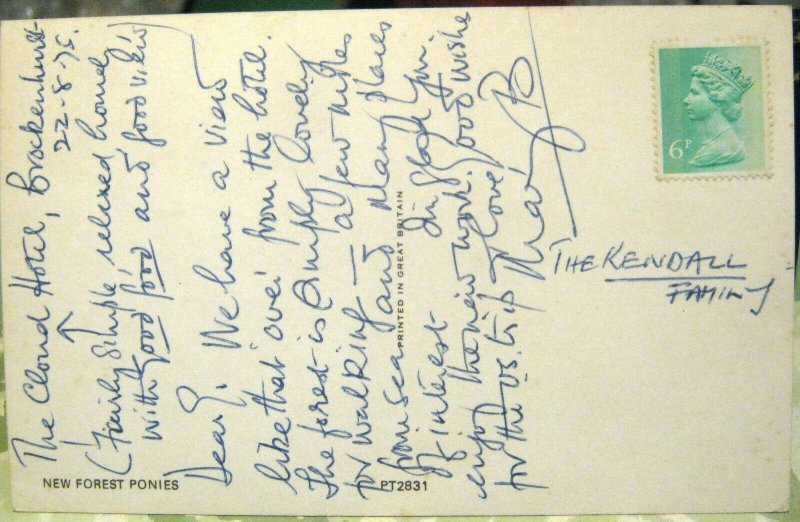 The Cloud Hotel, Brockenhurst
22-8-75.
(Fairly simple relaxed hotel
with good food and good view)
Dear J. We have a view
like that over from the hotel.
The forest is simply lovely
for walking – a few miles
from sea and many places
of interest. I'm glad you
enjoy the new work. Good wishes
for the US trip. Love
Mary B
6P
THE KENDALL
FAMILY
PRINTED IN GREAT BRITAIN
NEW FOREST PONIES
PT2831